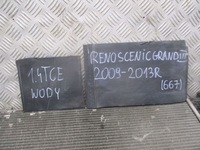 1.4TCE
WODY
RENOSCENICGRANDIII
2009-2013R
(667)